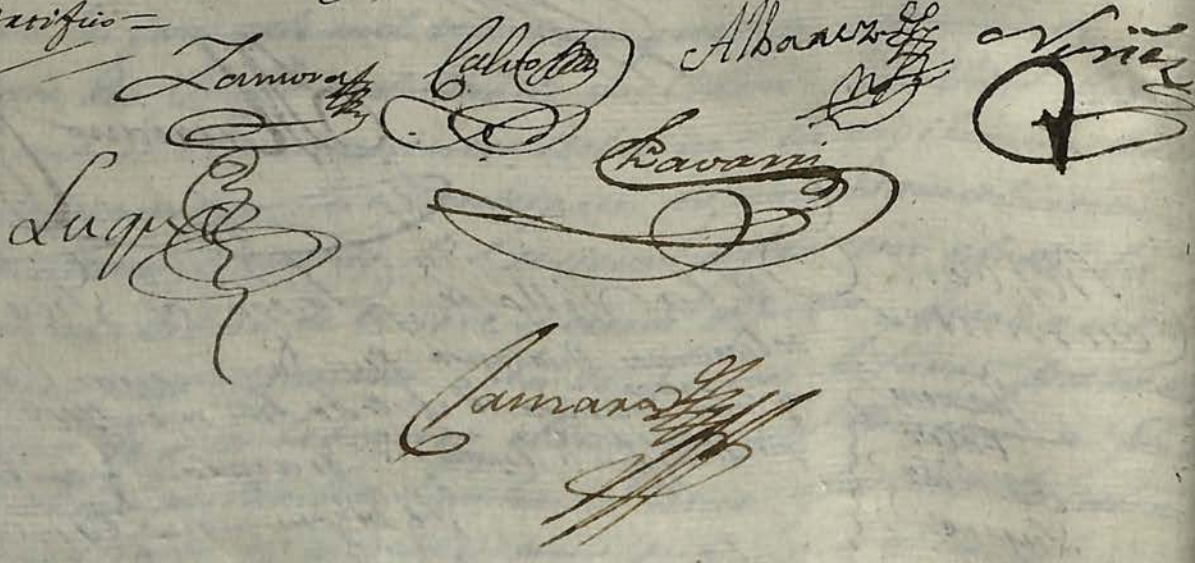 Zamora Calvo Albarez Nuñez
Luque Chavarri
Camara